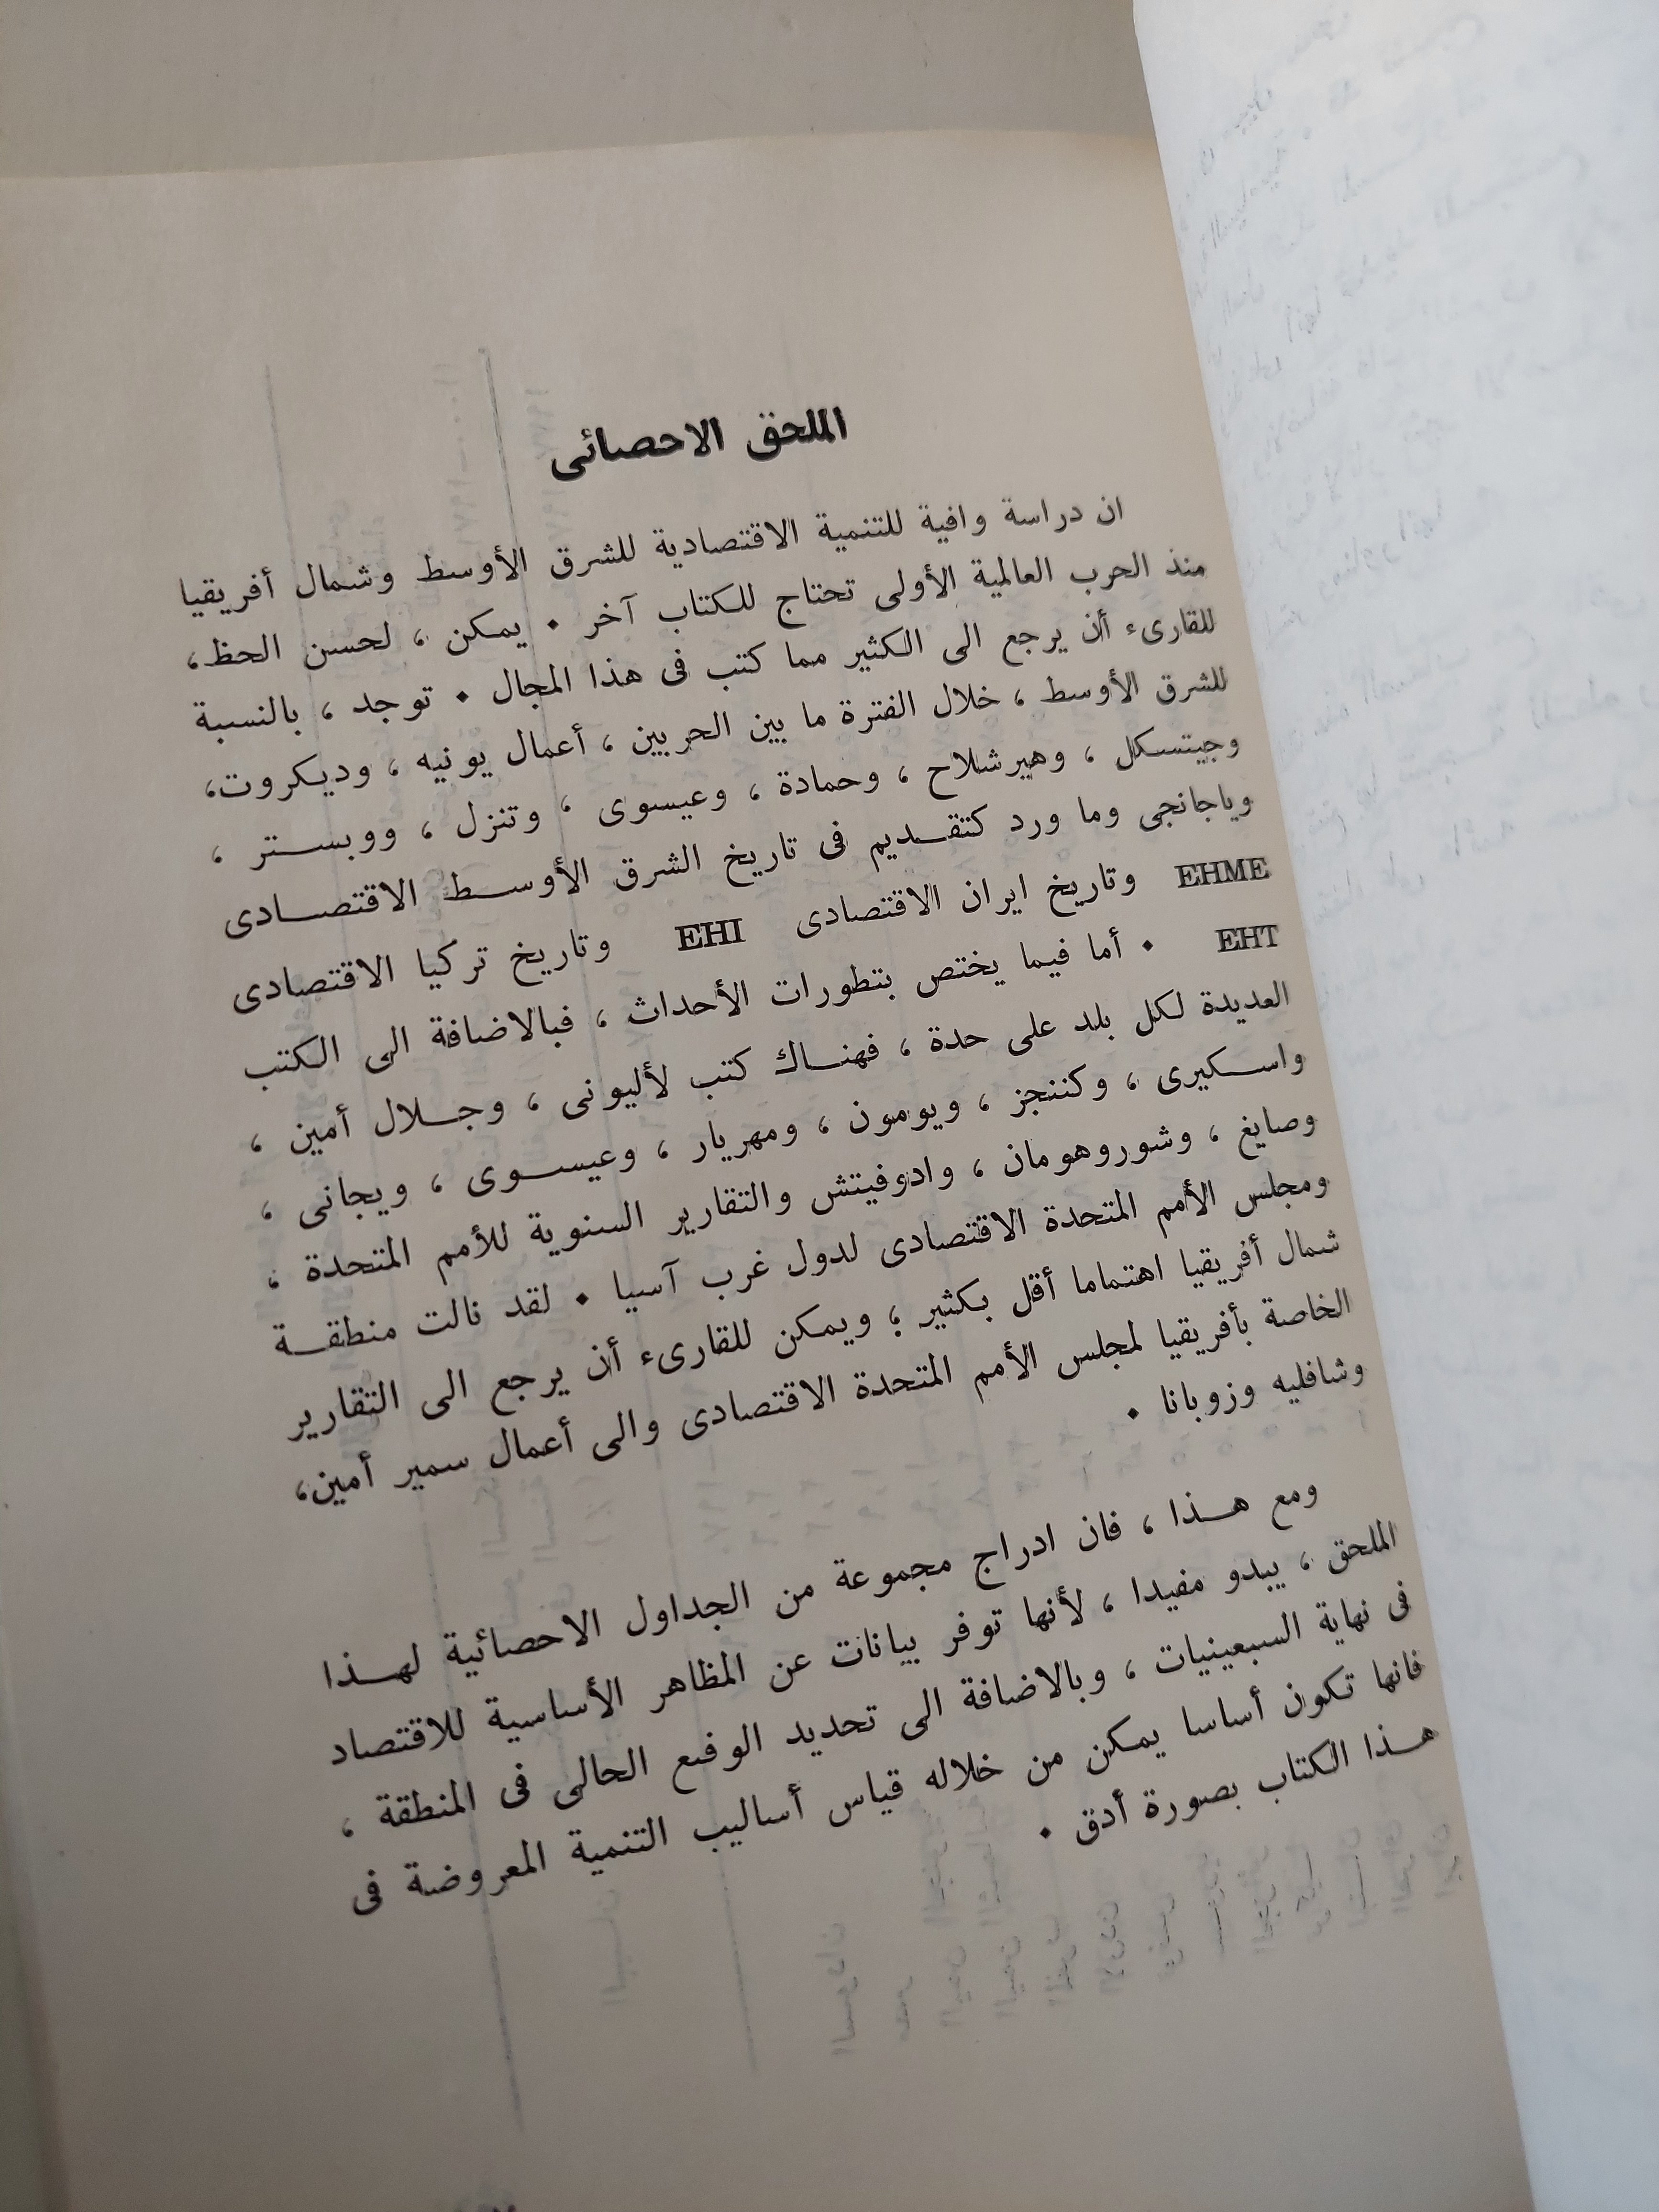 الملحق الاحصائى
ان دراسة وافية للتنمية الاقتصادية للشرق الأوسط وشمال أفريقيا
منذ الحرب العالمية الأولى تحتاج للكتاب آخر ٠ يمكن ، لحسن الحظ،
للقارىء أن يرجع الى الكثير مما كتب فى هذا المجال ٠ توجد ، بالنسبة
للشرق الأوسط ، خلال الفترة ما بين الحربين ، أعمال يونيه ، وديكروت،
وجيتسكل ، وهيرشلاح ، وحمادة ، وعيسوى ، وتنزل ، ووبستر ،
وياجانجى وما ورد كتقديم فى تاريخ الشرق الأوسط الاقتصادى
EHME وتاريخ ايران الاقتصادى EHI وتاريخ تركيا الاقتصادى
EHT ٠ أما فيما يختص بتطورات الأحداث ، فبالاضافة الى الكتب
العديدة لكل بلد على حدة ، فهناك كتب لأليونى ، وجلال أمين ،
واسكيرى ، وكننجز ، ويومون ، ومهريار ، وعيسوى ، ويجانى ،
وصايغ ، وشوروهومان ، وادوفيتش والتقارير السنوية للأمم المتحدة ،
ومجلس الأمم المتحدة الاقتصادى لدول غرب آسيا ٠ لقد نالت منطقة
شمال أفريقيا اهتماما أقل بكثير ؛ ويمكن للقارىء أن يرجع الى التقارير
الخاصة بأفريقيا لمجلس الأمم المتحدة الاقتصادى والى أعمال سمير أمين،
وشافليه وزوبانا ٠
ومع هذا ، فان ادراج مجموعة من الجداول الاحصائية لهذا
الملحق ، يبدو مفيدا ، لأنها توفر بيانات عن المظاهر الأساسية للاقتصاد
فى نهاية السبعينيات ، وبالاضافة الى تحديد الوضع الحالى فى المنطقة ،
فانها تكون أساسا يمكن من خلاله قياس أساليب التنمية المعروضة فى
هذا الكتاب بصورة أدق ٠